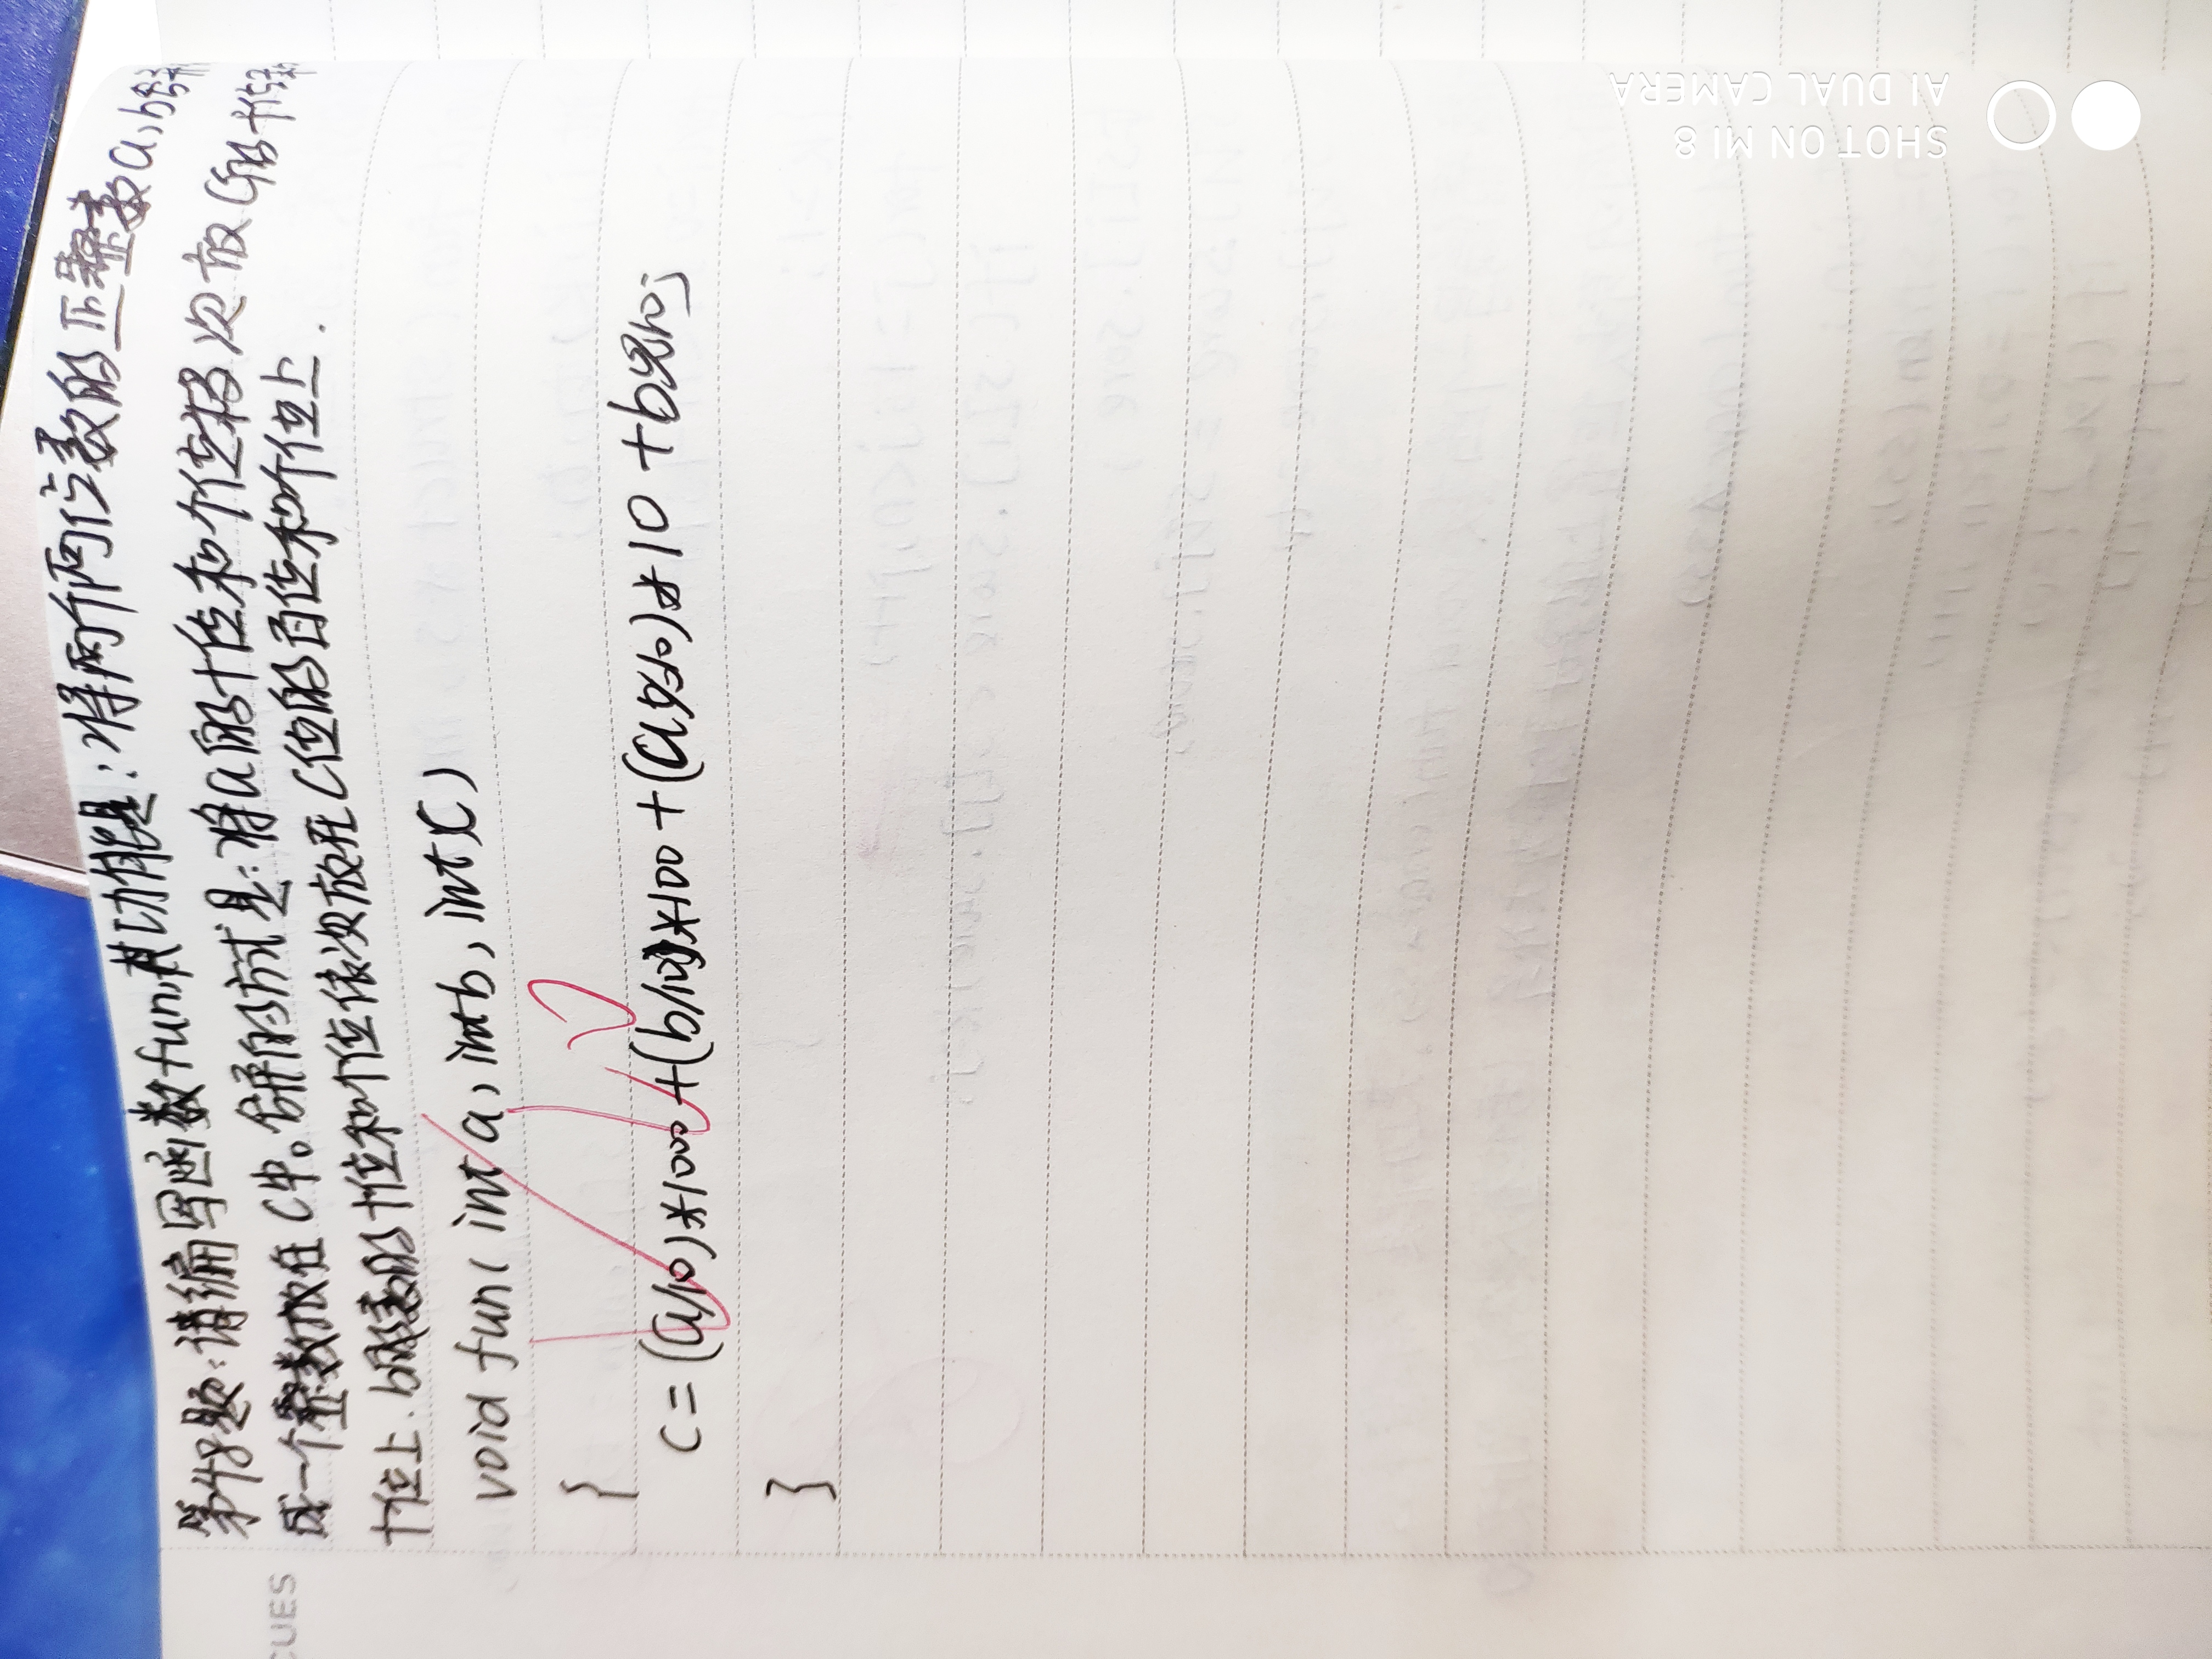 CUES
第48题:请编写函数fun,其功能是:将两个两位数的正整数a,b合并
成一个整数放在c中。合并的方式是:将a的十位和个位移次放在c的十位和
十位上.b的十位和个位依次放在c位的百位和个位上.
void fun( int a, int b, int c)
{
c=(a/10)*1000+(b/10)*100+(a%10)*10+b%10;
}
SHOT ON MI 8
AI DUAL CAMERA